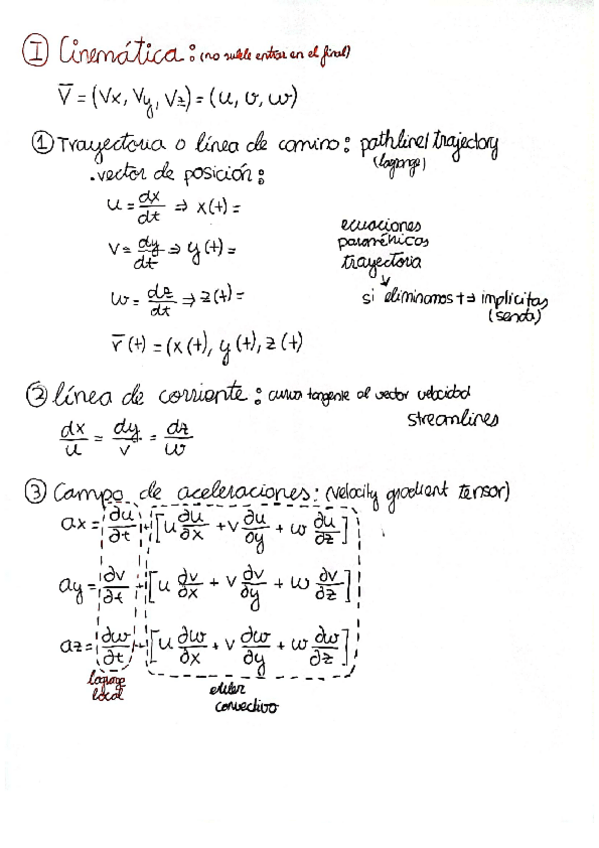 I Cinemática: (no suele entrar en el final)
V̄ = (Vx, Vy, Vz) = (u, v, w)
① Trayectoria o línea de camino: pathline/trajectory
(lagrange)
. vector de posición:
u = dx/dt ⇒ x(t) =
v = dy/dt ⇒ y(t) =
w = dz/dt ⇒ z(t) =
ecuaciones
paramétricas
trayectoria
↓
si eliminamos t ⇒ implícitas
(senda)
r̄(t) = (x(t), y(t), z(t)
② línea de corriente: curva tangente al vector velocidad
streamlines
dx/u = dy/v = dz/w
③ Campo de aceleraciones: (velocity gradient tensor)
ax = ∂u/∂t + [u ∂u/∂x + v ∂u/∂y + w ∂u/∂z]
ay = ∂v/∂t + [u ∂v/∂x + v ∂v/∂y + w ∂v/∂z]
az = ∂w/∂t + [u ∂w/∂x + v ∂w/∂y + w ∂w/∂z]
lagrange
local
euler
convectivo